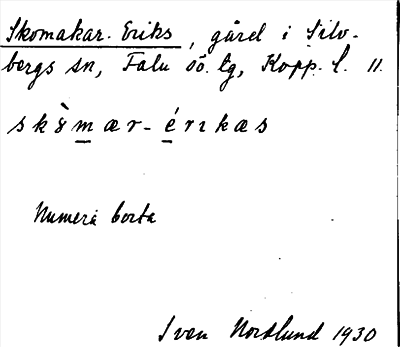 Skomakar-Eriks, gård i Silv-
bergs sn, Falu sö. tg, Kopp. l. 11.
skò̀mær-érıkæs
Numera borta
Sven Nordlund 1930